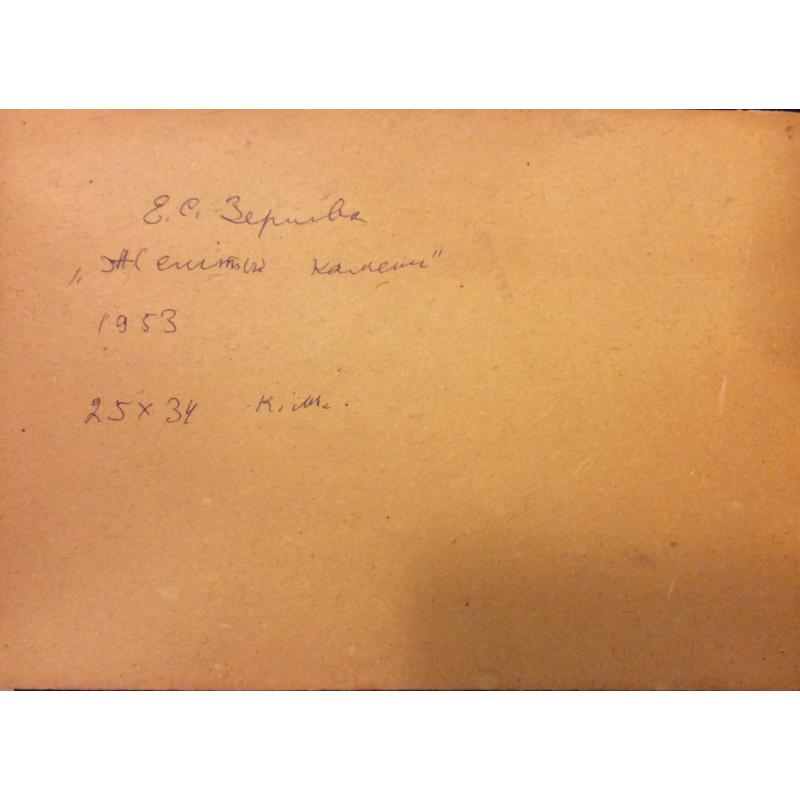 Е.С. Зернова
„Желтый камень"
1953
25 х 34 к.м.